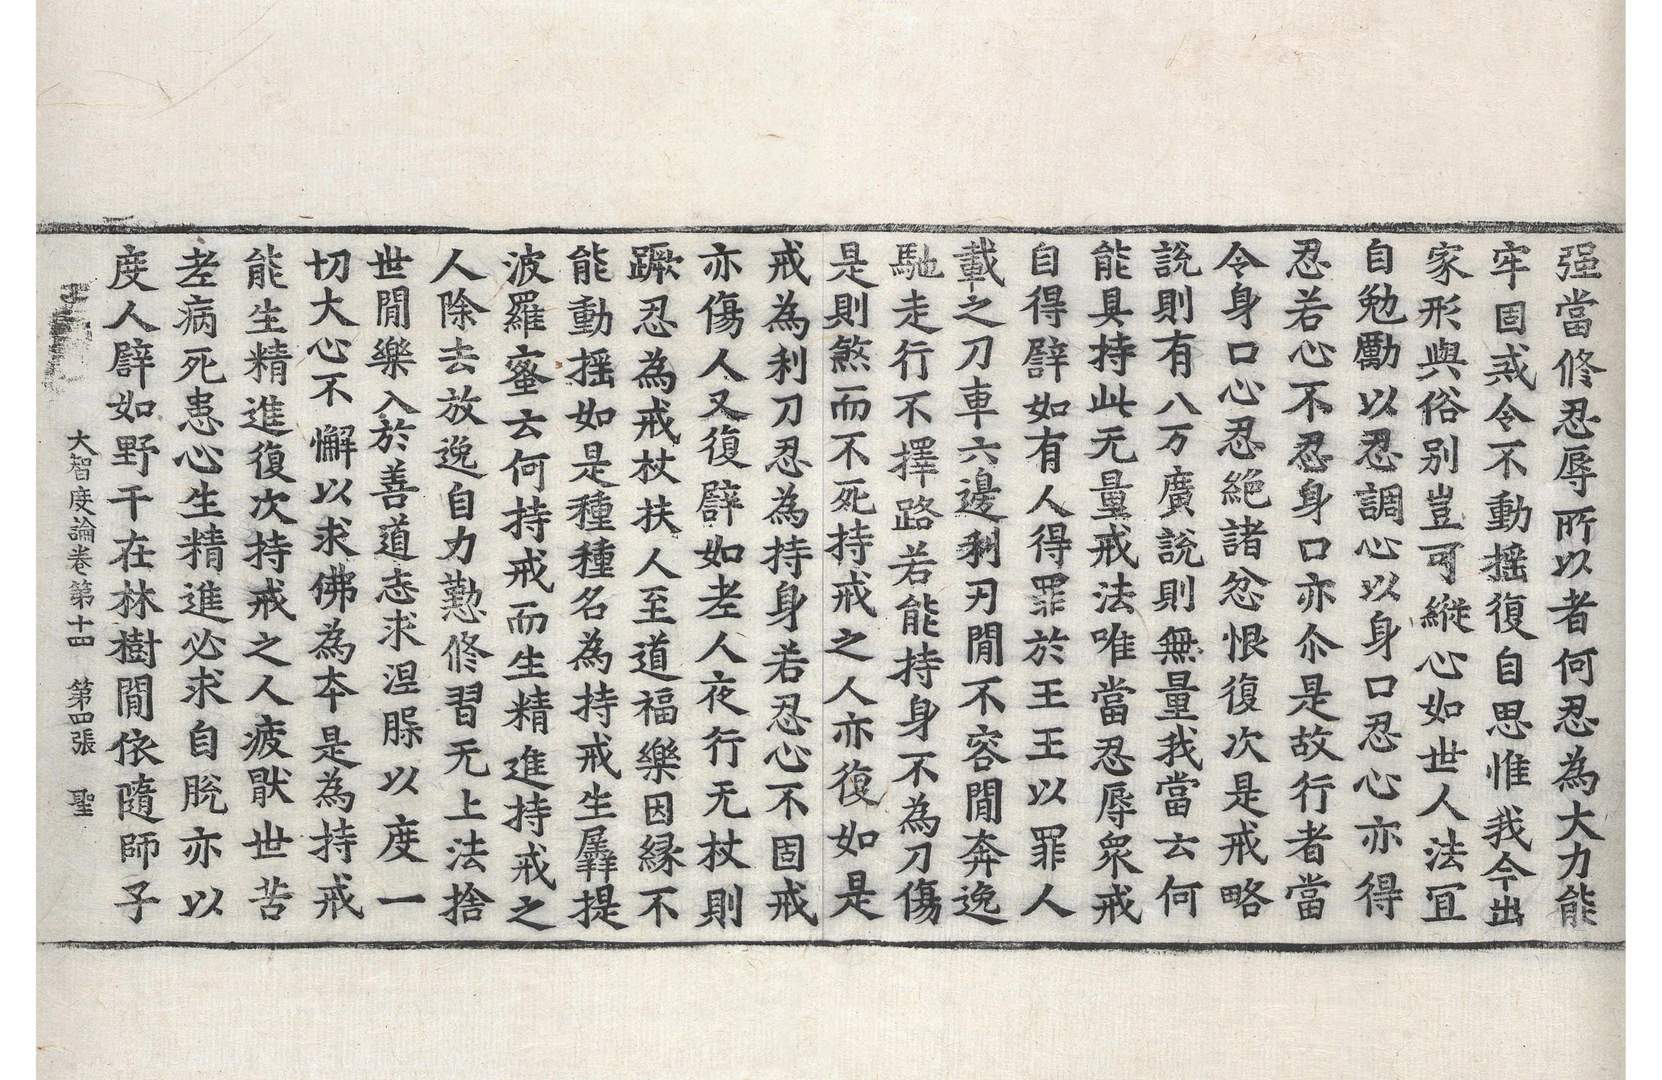 强當修忍辱所以者何忍為大力能
牢固戒令不動揺復自思惟我今出
家形與俗别豈可縱心如世人法冝
自勉勵以忍調心以身口忍心亦得
忍若心不忍身口亦尒是故行者當
令身口心忍絶諸忿恨復次是戒略
說則有八万廣說則無量我當云何
能具持此无量戒法唯當忍辱衆戒
自得譬如有人得罪於王王以罪人
載之刀車六邊利刃閒不容閒奔逸
馳走行不擇路若能持身不為刀傷
是則煞而不死持戒之人亦復如是
戒為利刀忍為持身若忍心不固戒
亦傷人又復譬如老人夜行无杖則
蹶忍為戒杖扶人至道福樂因縁不
能動揺如是種種名為持戒生羼提
波羅蜜云何持戒而生精進持戒之
人除去放逸自力懃修習无上法捨
世閒樂入於善道志求涅槃以度一
切大心不懈以求佛為本是為持戒
能生精進復次持戒之人疲猒世苦
老病死患心生精進必求自脫亦以
度人譬如野干在林樹閒依隨師子
大智度論卷第十四 第四張 聖